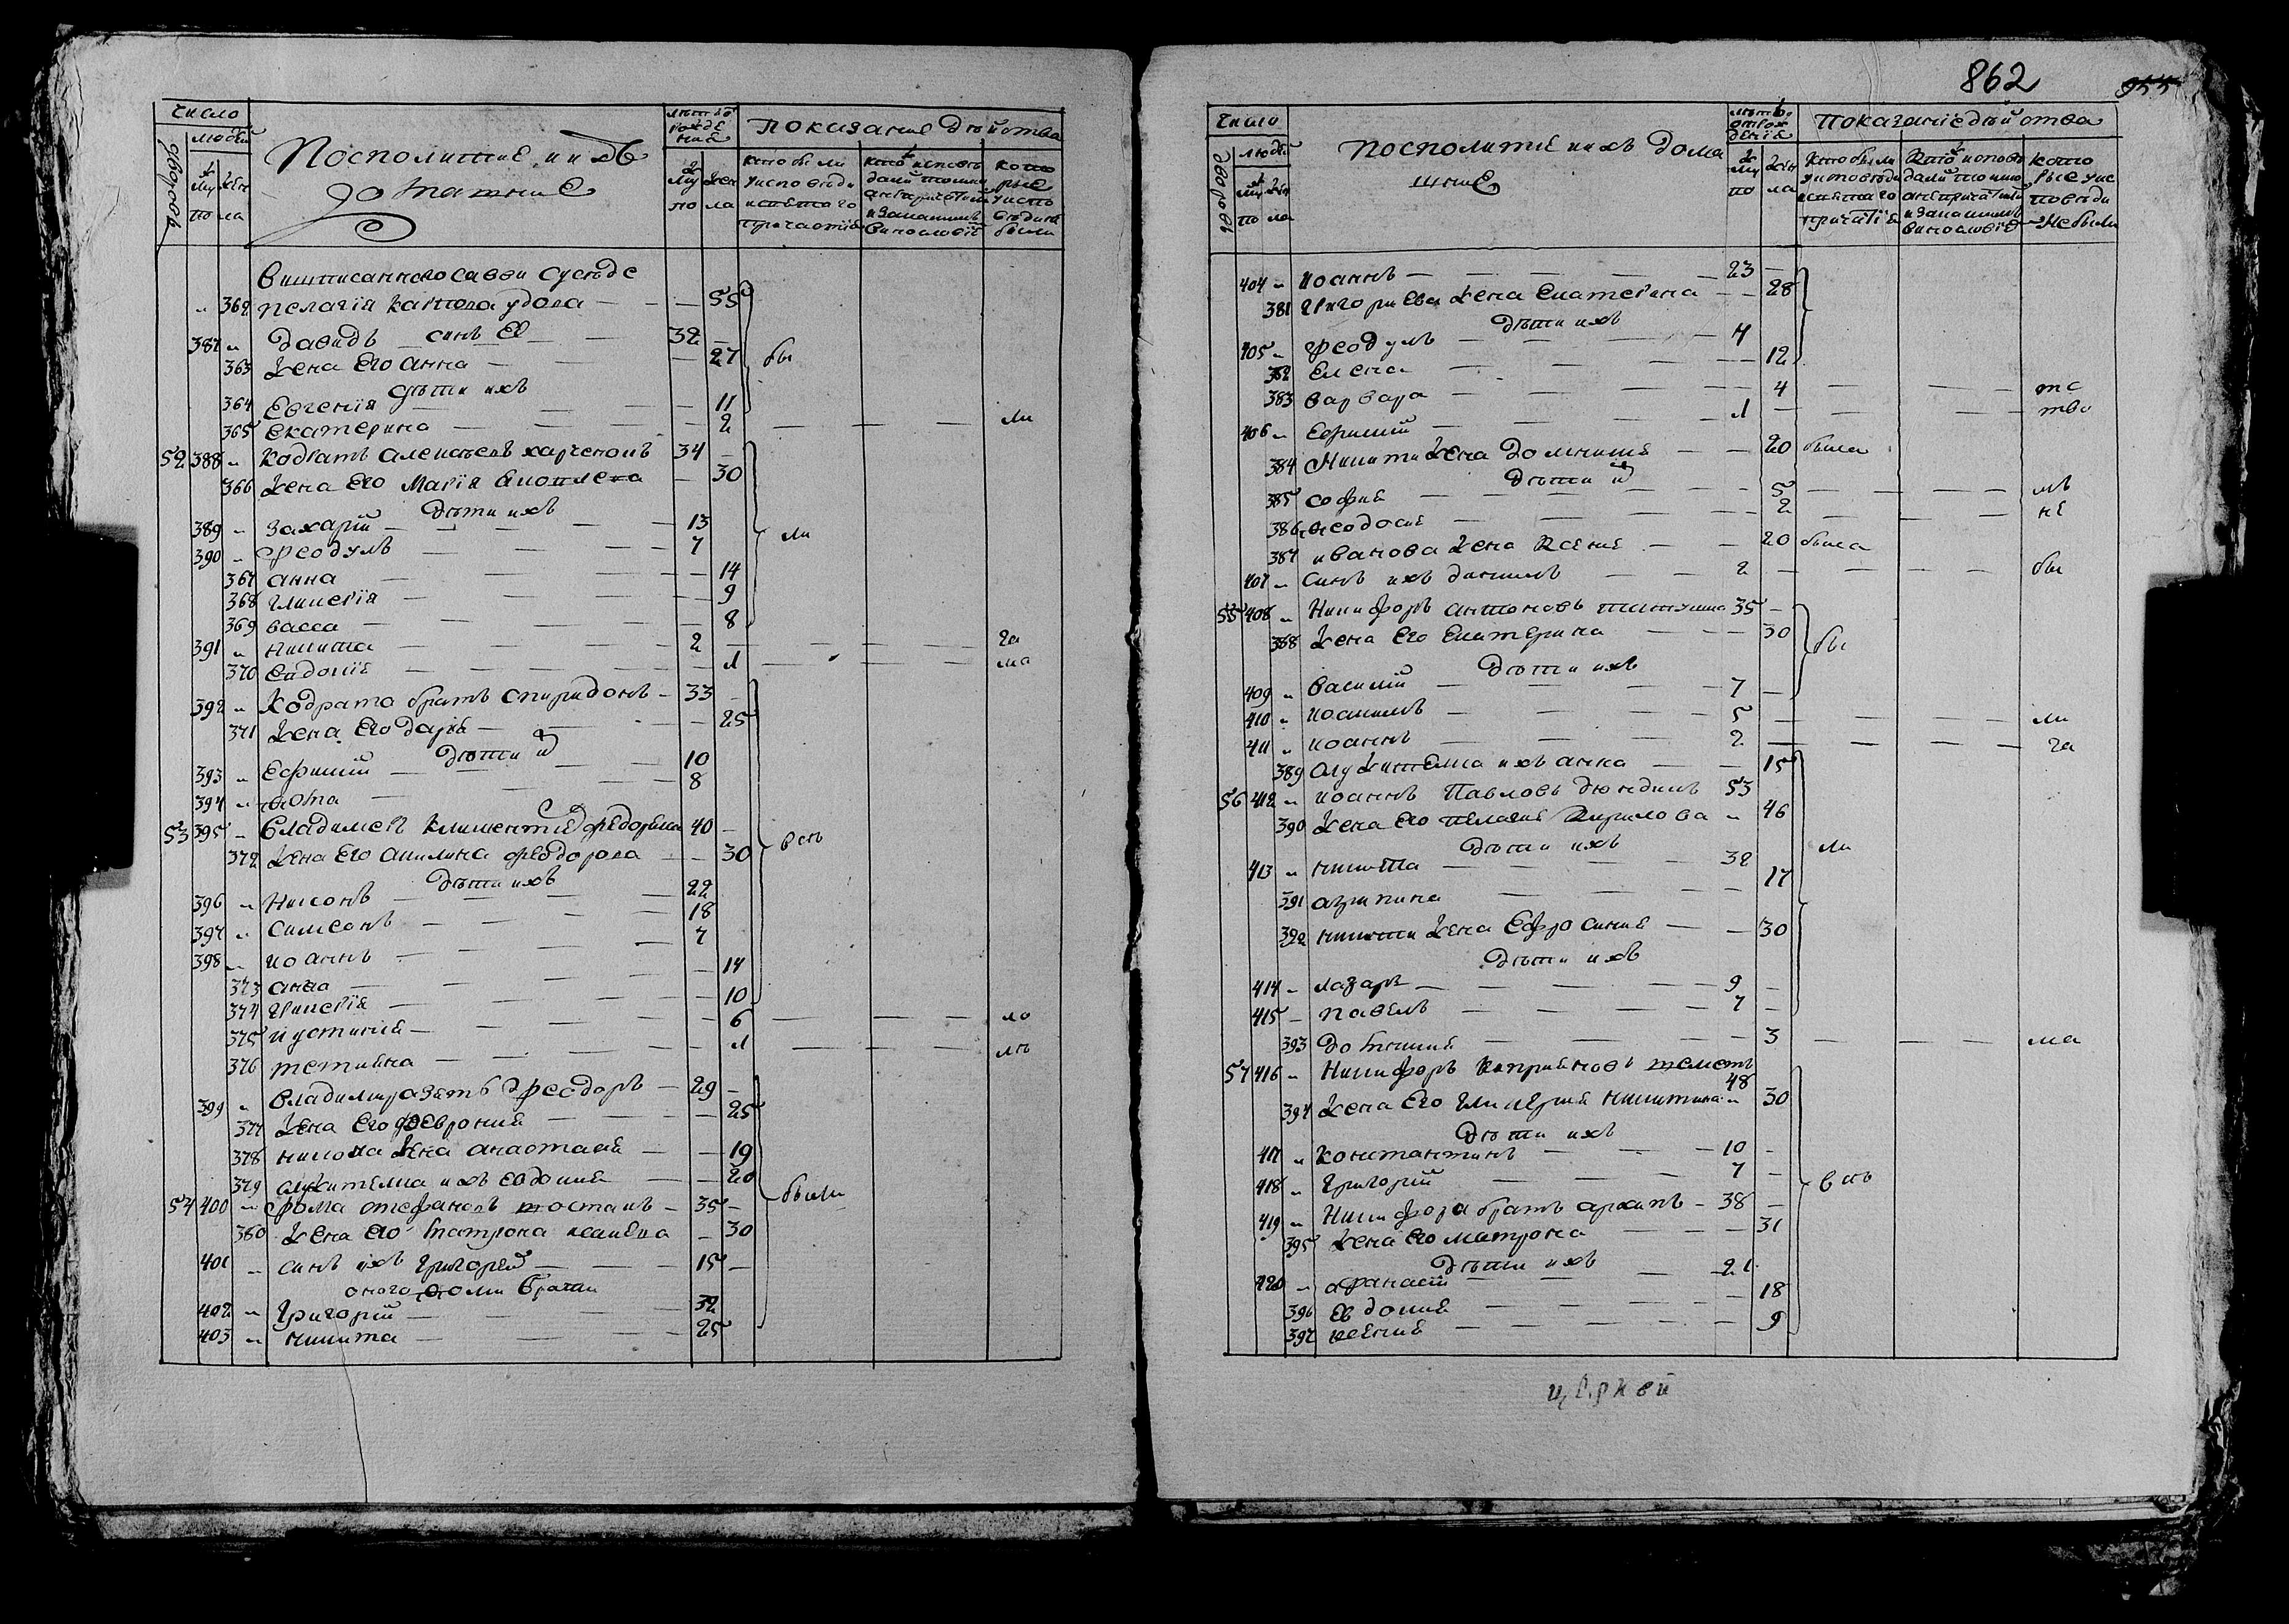 Число
дворовъ
людей
Муж Жен
по ла
Посполитие и ихъ
домашние
лѣтъ от
рожде
ния
Муж Жен
по ла
показание дѣйства
кто были
уисповѣди
исвятаго
причастия
кто исповѣ
дали токмо
анепричастил
изакакимъ
винословіе
кото
рые
уиспо
вѣди не
были
вишписанного савви сусѣде
" 362 пелагія карпова удова — 55
387 " давидъ синъ Ее 32 —
363 Жена Его анна — 27 бы
дѣти ихъ
364 Евгенія — 11
365 Екатерина — 2 — — — ли
52 388 " кодратъ алексѣевъ харченокъ 34 —
366 Жена Его Марія — 30
дѣти ихъ
389 " Захарій — 13
390 " феодулъ — 7 ли
367 анна — 14
368 гликерія — 9
369 васса — 8
391 " никита — 2 — — — га
370 Евдокіе — 1 — — — ма
392 " кодрата братъ спиридонъ — 33 —
371 Жена Его дарѣе — 25
дѣти их
393 " Ефимій — 10
394 " фома — 8
53 395 " владимеръ климентіе 40 —
372 Жена Его акилина феодорова — 30 веѣ
дѣти ихъ
396 " Никонъ — 22
397 " симеонъ — 18
398 " иоаннъ — 7
373 анна — 14
374 гликерія — 10
375 иустиніе — 6 — — — ло
376 тетиана — 1 — — — лѣ
399 " владимира зять феодоръ — 29 —
377 Жена Его февроние — 25
378 никона Жена анастасие — 19
379 служителка ихъ Евдокие — 20
54 400 " фома стефановъ 35 — были
380 Жена Его матрона 30
401 " синъ ихъ григорей — 15 —
оного фоми брати
402 " григорій — 32
403 " никита — 25
862
955
Число
дворовъ
людей
Муж Жен
по ла
посполитіе иихъ дома
шние
лѣтъ
отрож
деніе
Муж Жен
по ла
показаніе дѣйства
Кто были
уисповѣди
исвятаго
причастіе
Кто испове
дали токмо
анепричастил
изакакимъ
винословіе
кото
рые уис
повѣди
не были
404 " иоаннъ — 23 —
381 григориева Жена Екатерина — 28
дѣти ихъ
405 " феодулъ — 4
382 Елена — 12
383 варвара — 4 — — тс
406 " Ефимий — 1 — — — тво
384 Никити Жена домникие — 20 была
дѣти их
385 софие — 5 — — — мѣ
386 феодосие — 2 — — не
387 иванова Жена Ксение — 20 была
407 " синъ ихъ даниилъ — 2 — — — — бы
55 408 " Никифоръ антоновъ 35 —
388 Жена Его Екатерина — 30 бы
дѣти ихъ
409 " василий — 7 —
410 " иоакимъ — 5 — — — ли
411 " иоаннъ — 2 — — — га
389 служителка ихъ анна — 15
56 412 " иоаннъ Павловъ дюндикъ 53
390 Жена Его пелагие Кирилова " 46
дѣти ихъ ли
413 " никита — 32
391 агрипина — 17
392 никити Жена Ефросиние — 30
дѣти ихъ
414 " лазарь — 9 —
415 — павелъ — 7 —
393 домникие — 3 — — — ма
57 416 " Никифоръ каприяновъ 48
394 Жена Его гликерие никитина " 30
дѣти ихъ
417 " константинъ — 10 —
418 " григорий — 7 —
419 " Никифора братъ архипъ — 38 — веѣ
395 Жена Его матрона — 31
дѣти ихъ
420 " афанасий — 21
396 Евдокие — 18
397 ксение — 9
церкви